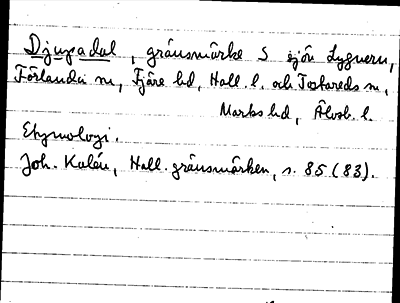 Djupadal, gränsmärke S sjön Lygnern,
Förlanda sn, Fjäre hd, Hall. l. och Tostareds sn,
Marks hd, Älvsb. l.
Etymologi.
Joh. Kalén, Hall. gränsmärken, s. 85 (83).